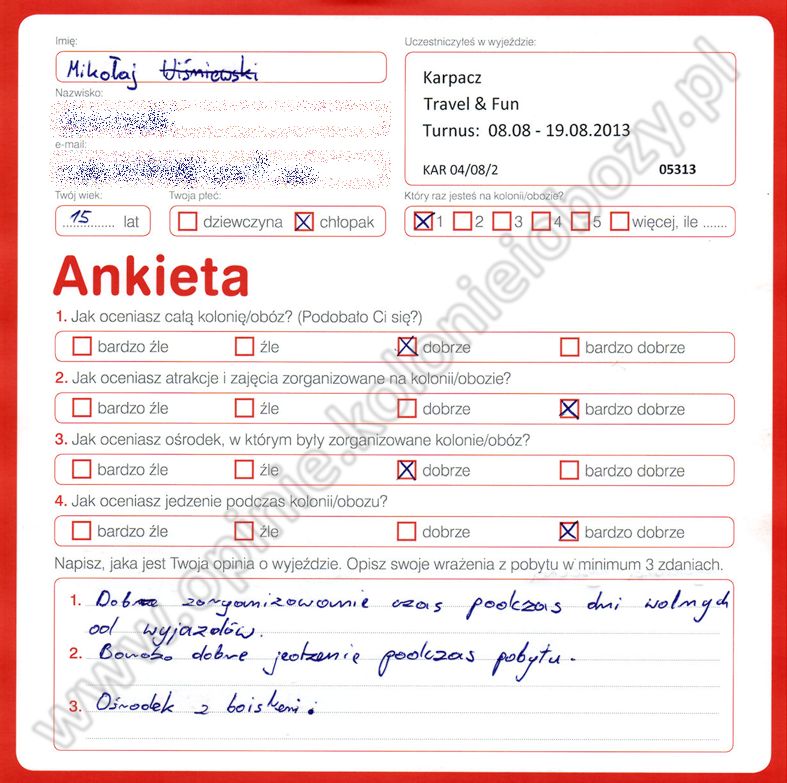 Imię:
Uczestniczyłeś w wyjeździe:
Mikołaj Wiśniewski
Karpacz
Nazwisko:
Travel & Fun
Turnus: 08.08 - 19.08.2013
e-mail:
KAR 04/08/2 05313
Twój wiek: Twoja płeć: Który raz jesteś na kolonii/obozie?
15 lat dziewczyna chłopak 1 2 3 4 5 więcej, ile .......
Ankieta
1. Jak oceniasz całą kolonię/obóz? (Podobało Ci się?)
bardzo źle źle dobrze bardzo dobrze
2. Jak oceniasz atrakcje i zajęcia zorganizowane na kolonii/obozie?
bardzo źle źle dobrze bardzo dobrze
3. Jak oceniasz ośrodek, w którym były zorganizowane kolonie/obóz?
bardzo źle źle dobrze bardzo dobrze
4. Jak oceniasz jedzenie podczas kolonii/obozu?
bardzo źle źle dobrze bardzo dobrze
Napisz, jaka jest Twoja opinia o wyjeździe. Opisz swoje wrażenia z pobytu w minimum 3 zdaniach.
1. Dobre zorganizowanie czas podczas dni wolnych
od wyjazdów.
2. Bardzo dobre jedzenie podczas pobytu.
3. Ośrodek z boiskami.
www.opinie.kolonieiobozy.pl